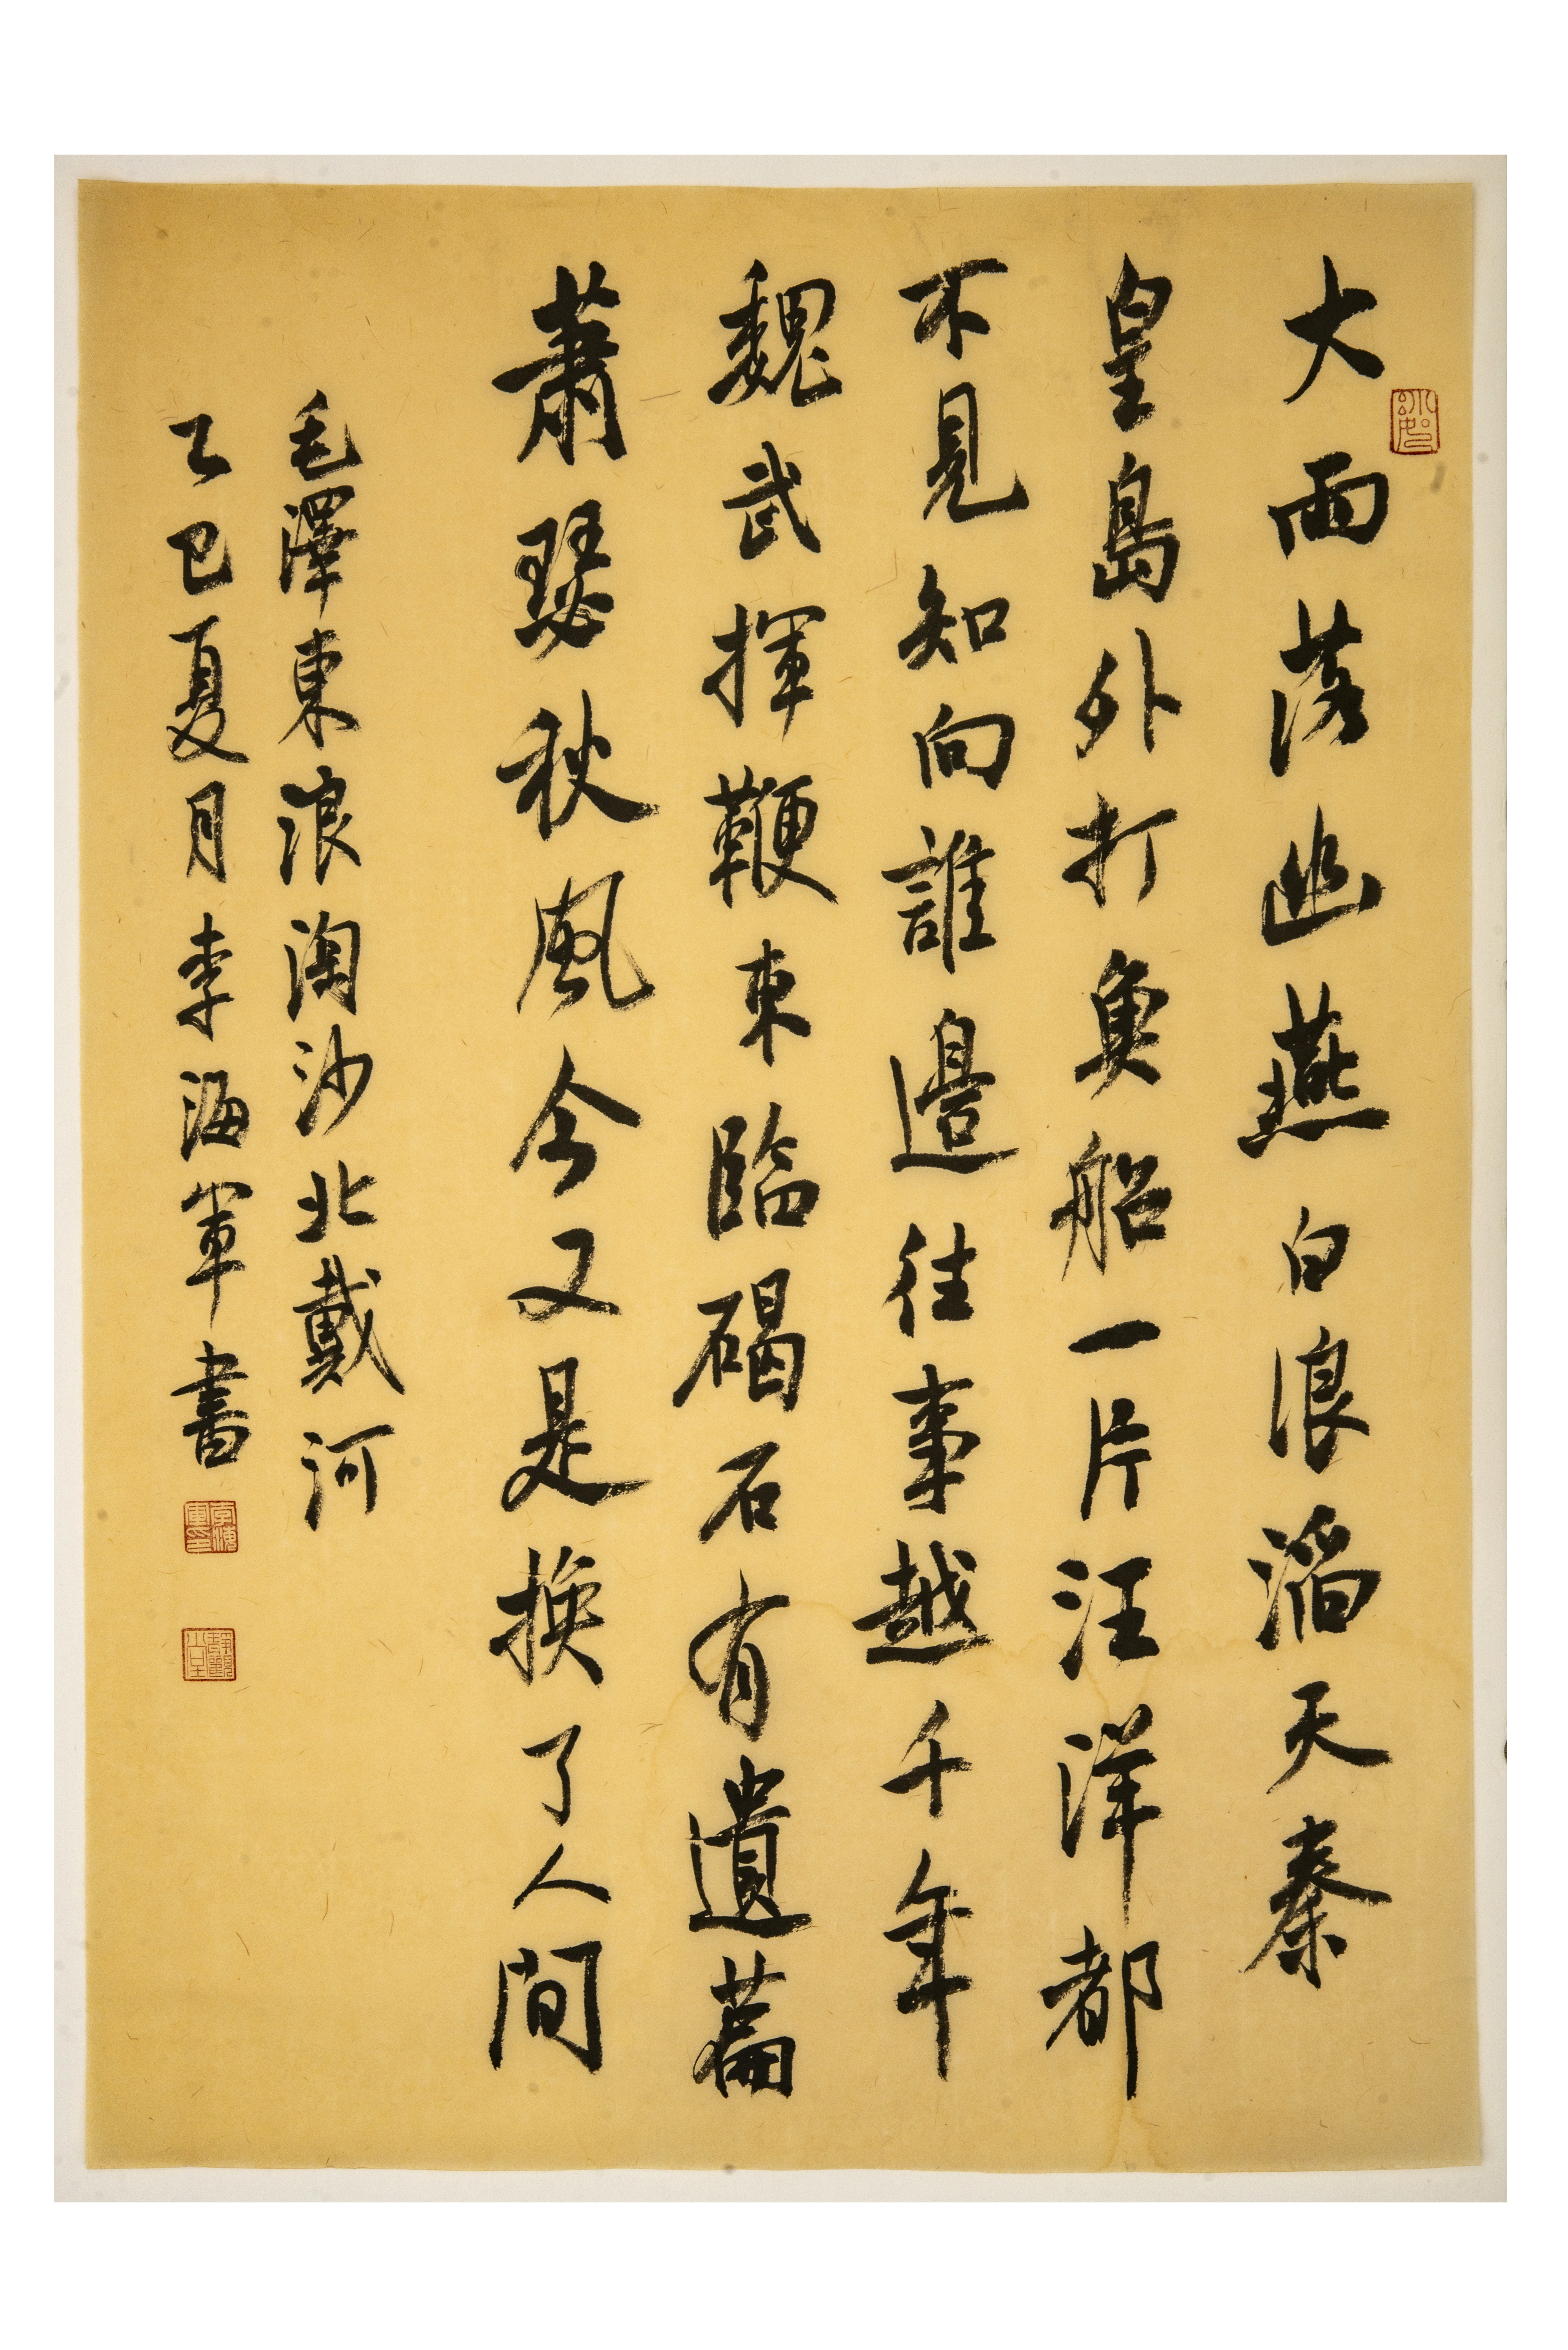 大雨落幽燕白浪滔天秦
皇島外打魚船一片汪洋都
不見知向誰邊往事越千年
魏武揮鞭東臨碣石有遺篇
蕭瑟秋風今又是換了人間
毛澤東浪淘沙北戴河
乙巳夏月李海軍書
李海軍印